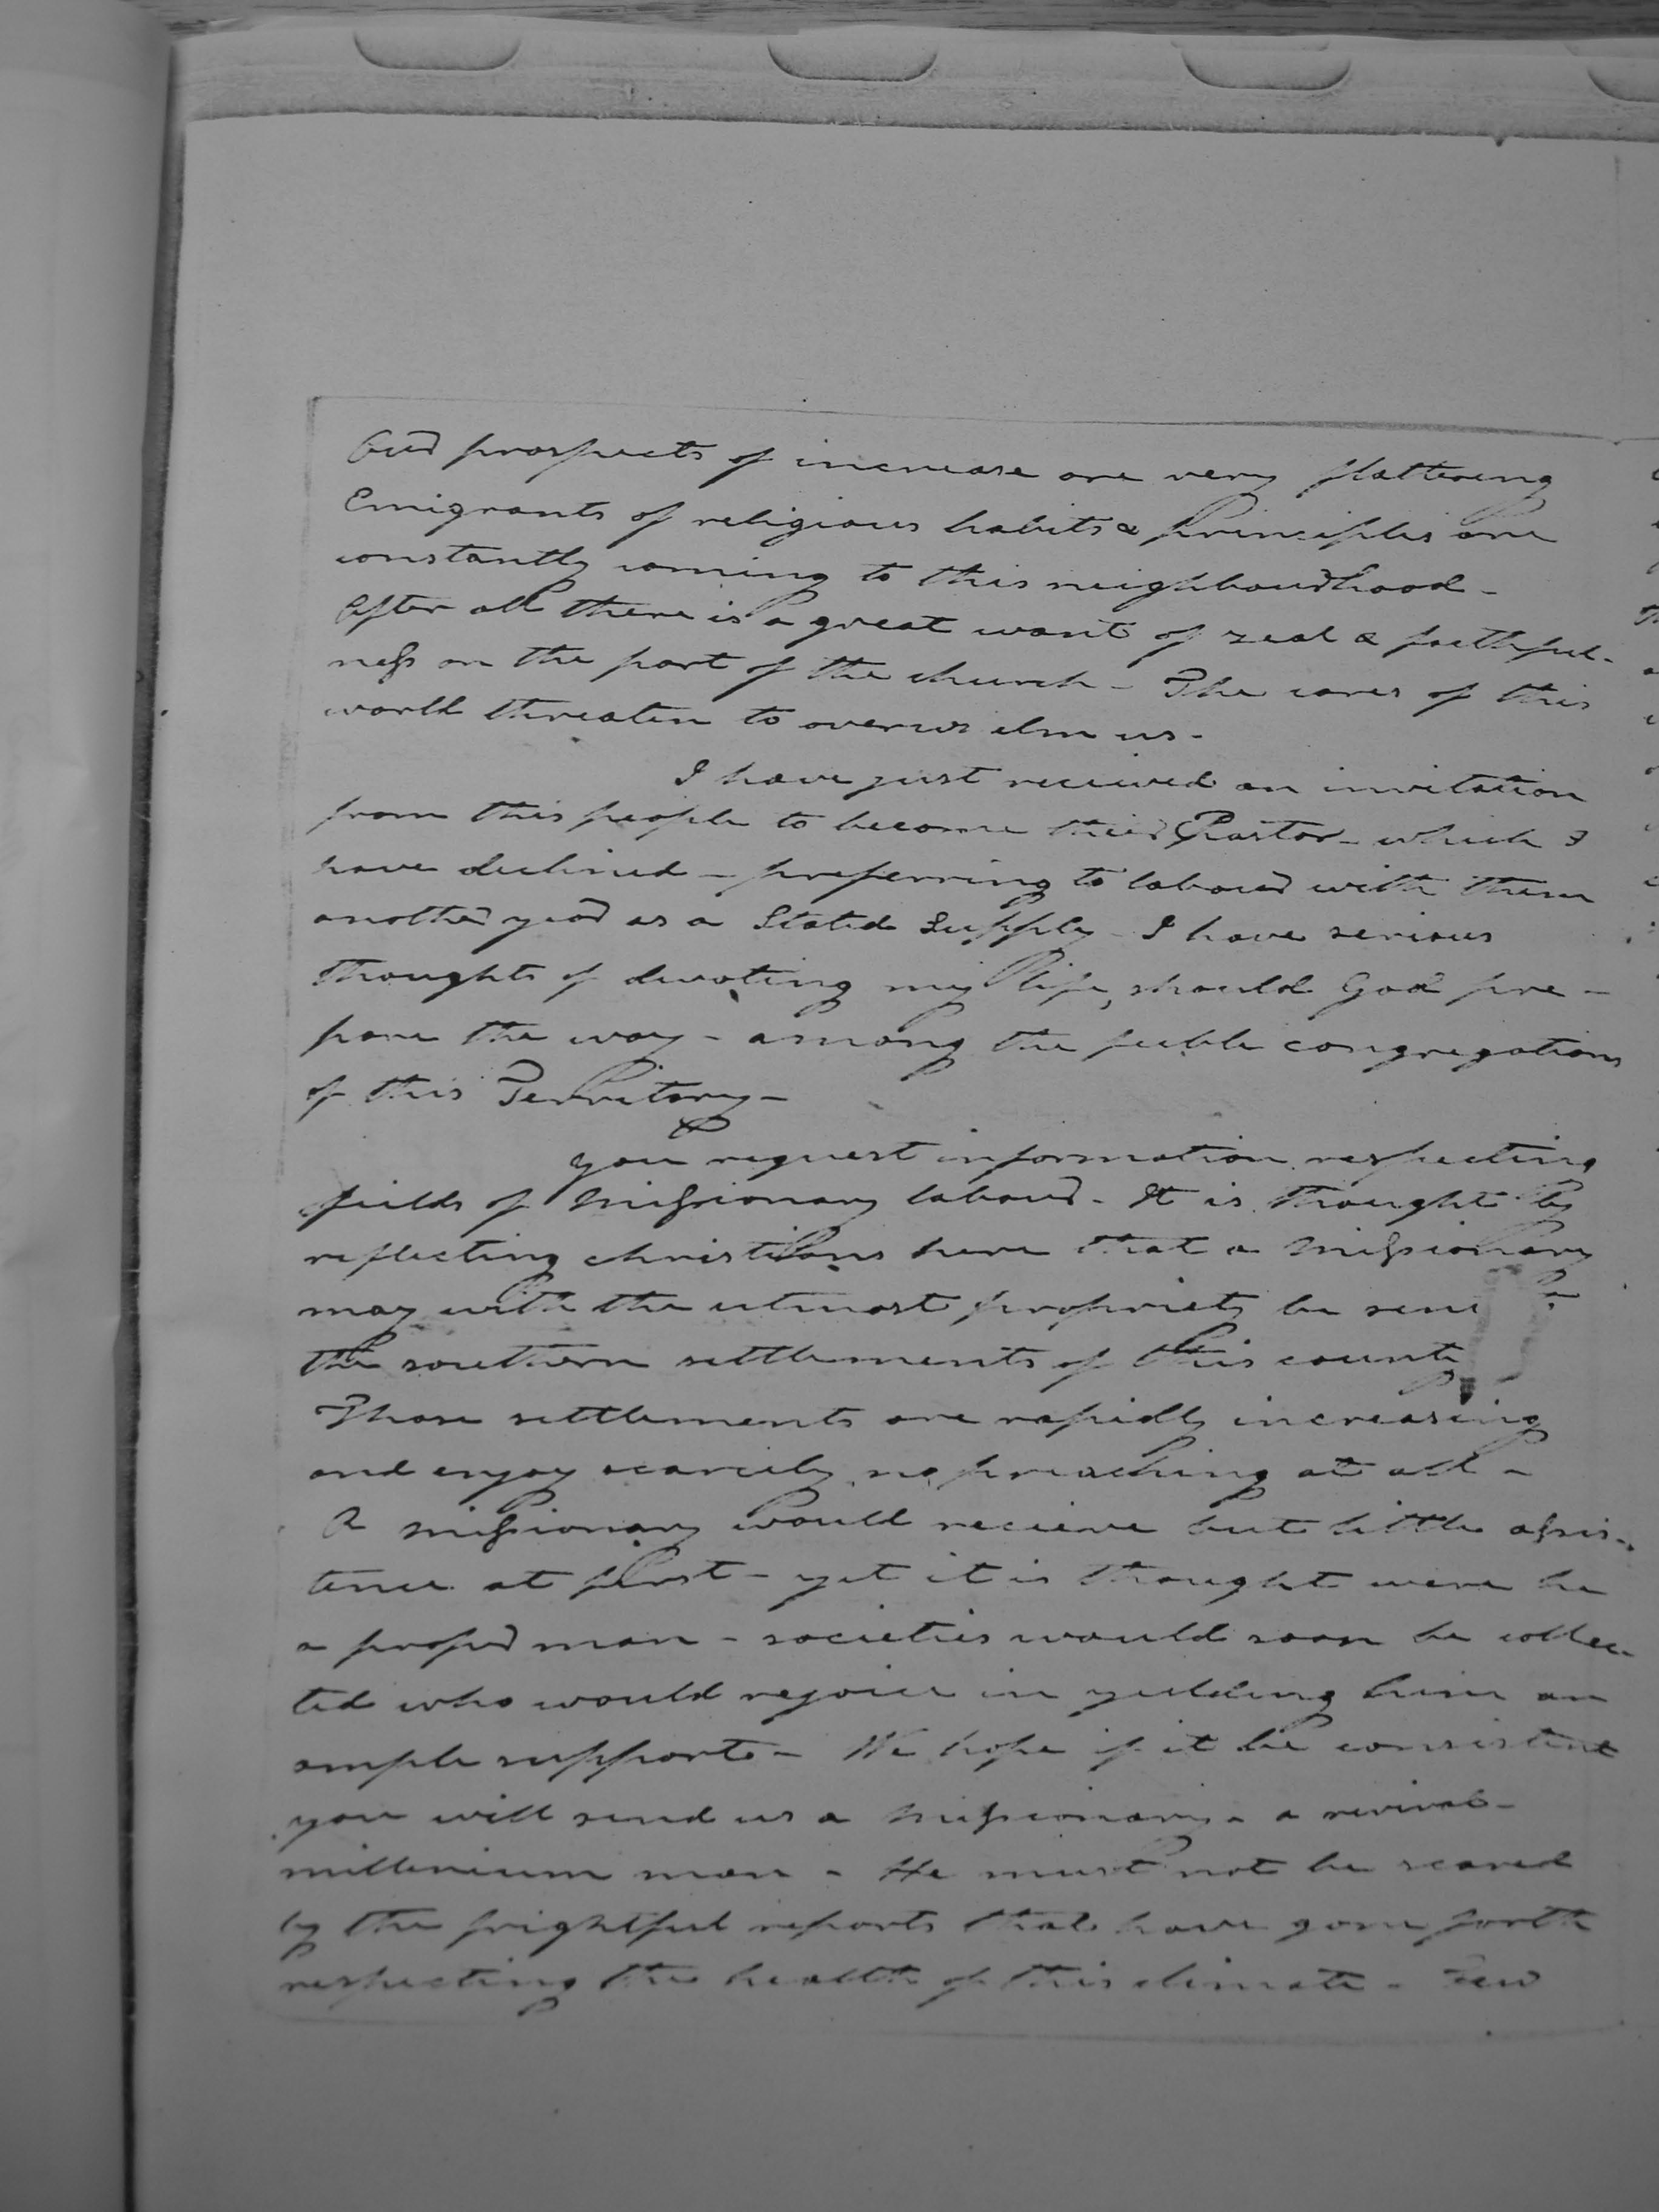 Our prospects of increase are very flattering
Emigrants of religious habits & principles are
constantly coming to this neighbourhood -
After all there is a great want of zeal & faithful-
ness on the part of the church - The cares of this
world threaten to overwhelm us -
I have just recieved an invitation
from this people to become their Pastor - which I
have declined - preferring to labour with them
another year as a Stated Supply - I have serious
thoughts of devoting my life, should God pre-
pare the way - among the feeble congregations
of this Territory -
You request information respecting
fields of missionary labour - It is thought by
reflecting christians here that a missionary
may with the utmost propriety be sent
the southern settlements of this county
Those settlements are rapidly increasing
and enjoy scarcely no preaching at all -
A missionary would recieve but little assis-
tence at first - yet it is thought were he
a proper man - societies would soon be collec-
ted who would rejoice in yielding him an
ample support - We hope if it be consistent
you will send us a missionary - a revival -
millenium man - He must not be scared
by the frightful reports that have gone forth
respecting the health of this climate - Few